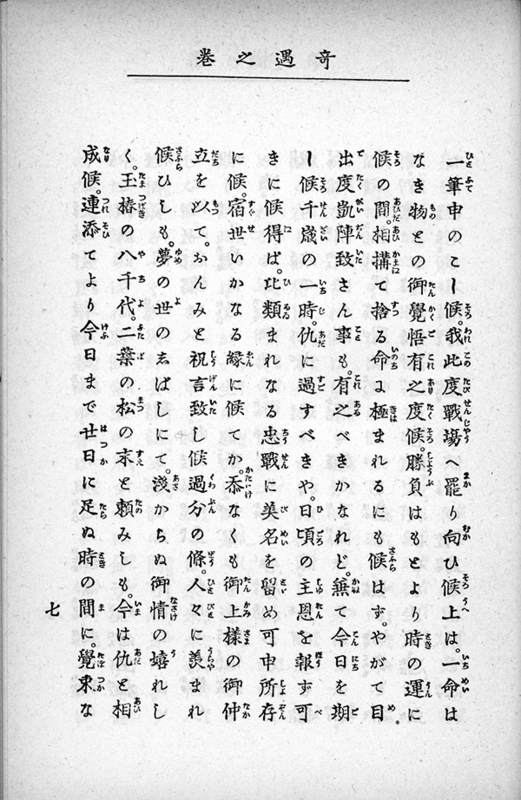 奇遇之卷
一筆申のこし候。我此度戰塲へ罷り向ひ候上は。一命は
なき物との御覺悟有之度候。勝負はもとより時の運に
候の間。相搆て捨る命に極まれるにも候はず。やがて目
出度凱陣致さん事も。有之べきかなれど。兼て今日を期
し候千歳の一時。仇に過すべきや。日頃の主恩を報ず可
きに候得ば。比類まれなる忠戰に美名を留め可申所存
に候。宿世いかなる縁に候てか。忝なくも御上樣の御仲
立を以て。おんみと祝言致し候過分の條。人々に羨まれ
候ひしも。夢の世のしばしにて。淺からぬ御情の嬉れし
く。玉椿の八千代。二葉の松の末と頼みしも。今は仇と相
成候。連添てより今日まで廿日に足ぬ時の間に。覺束な
七